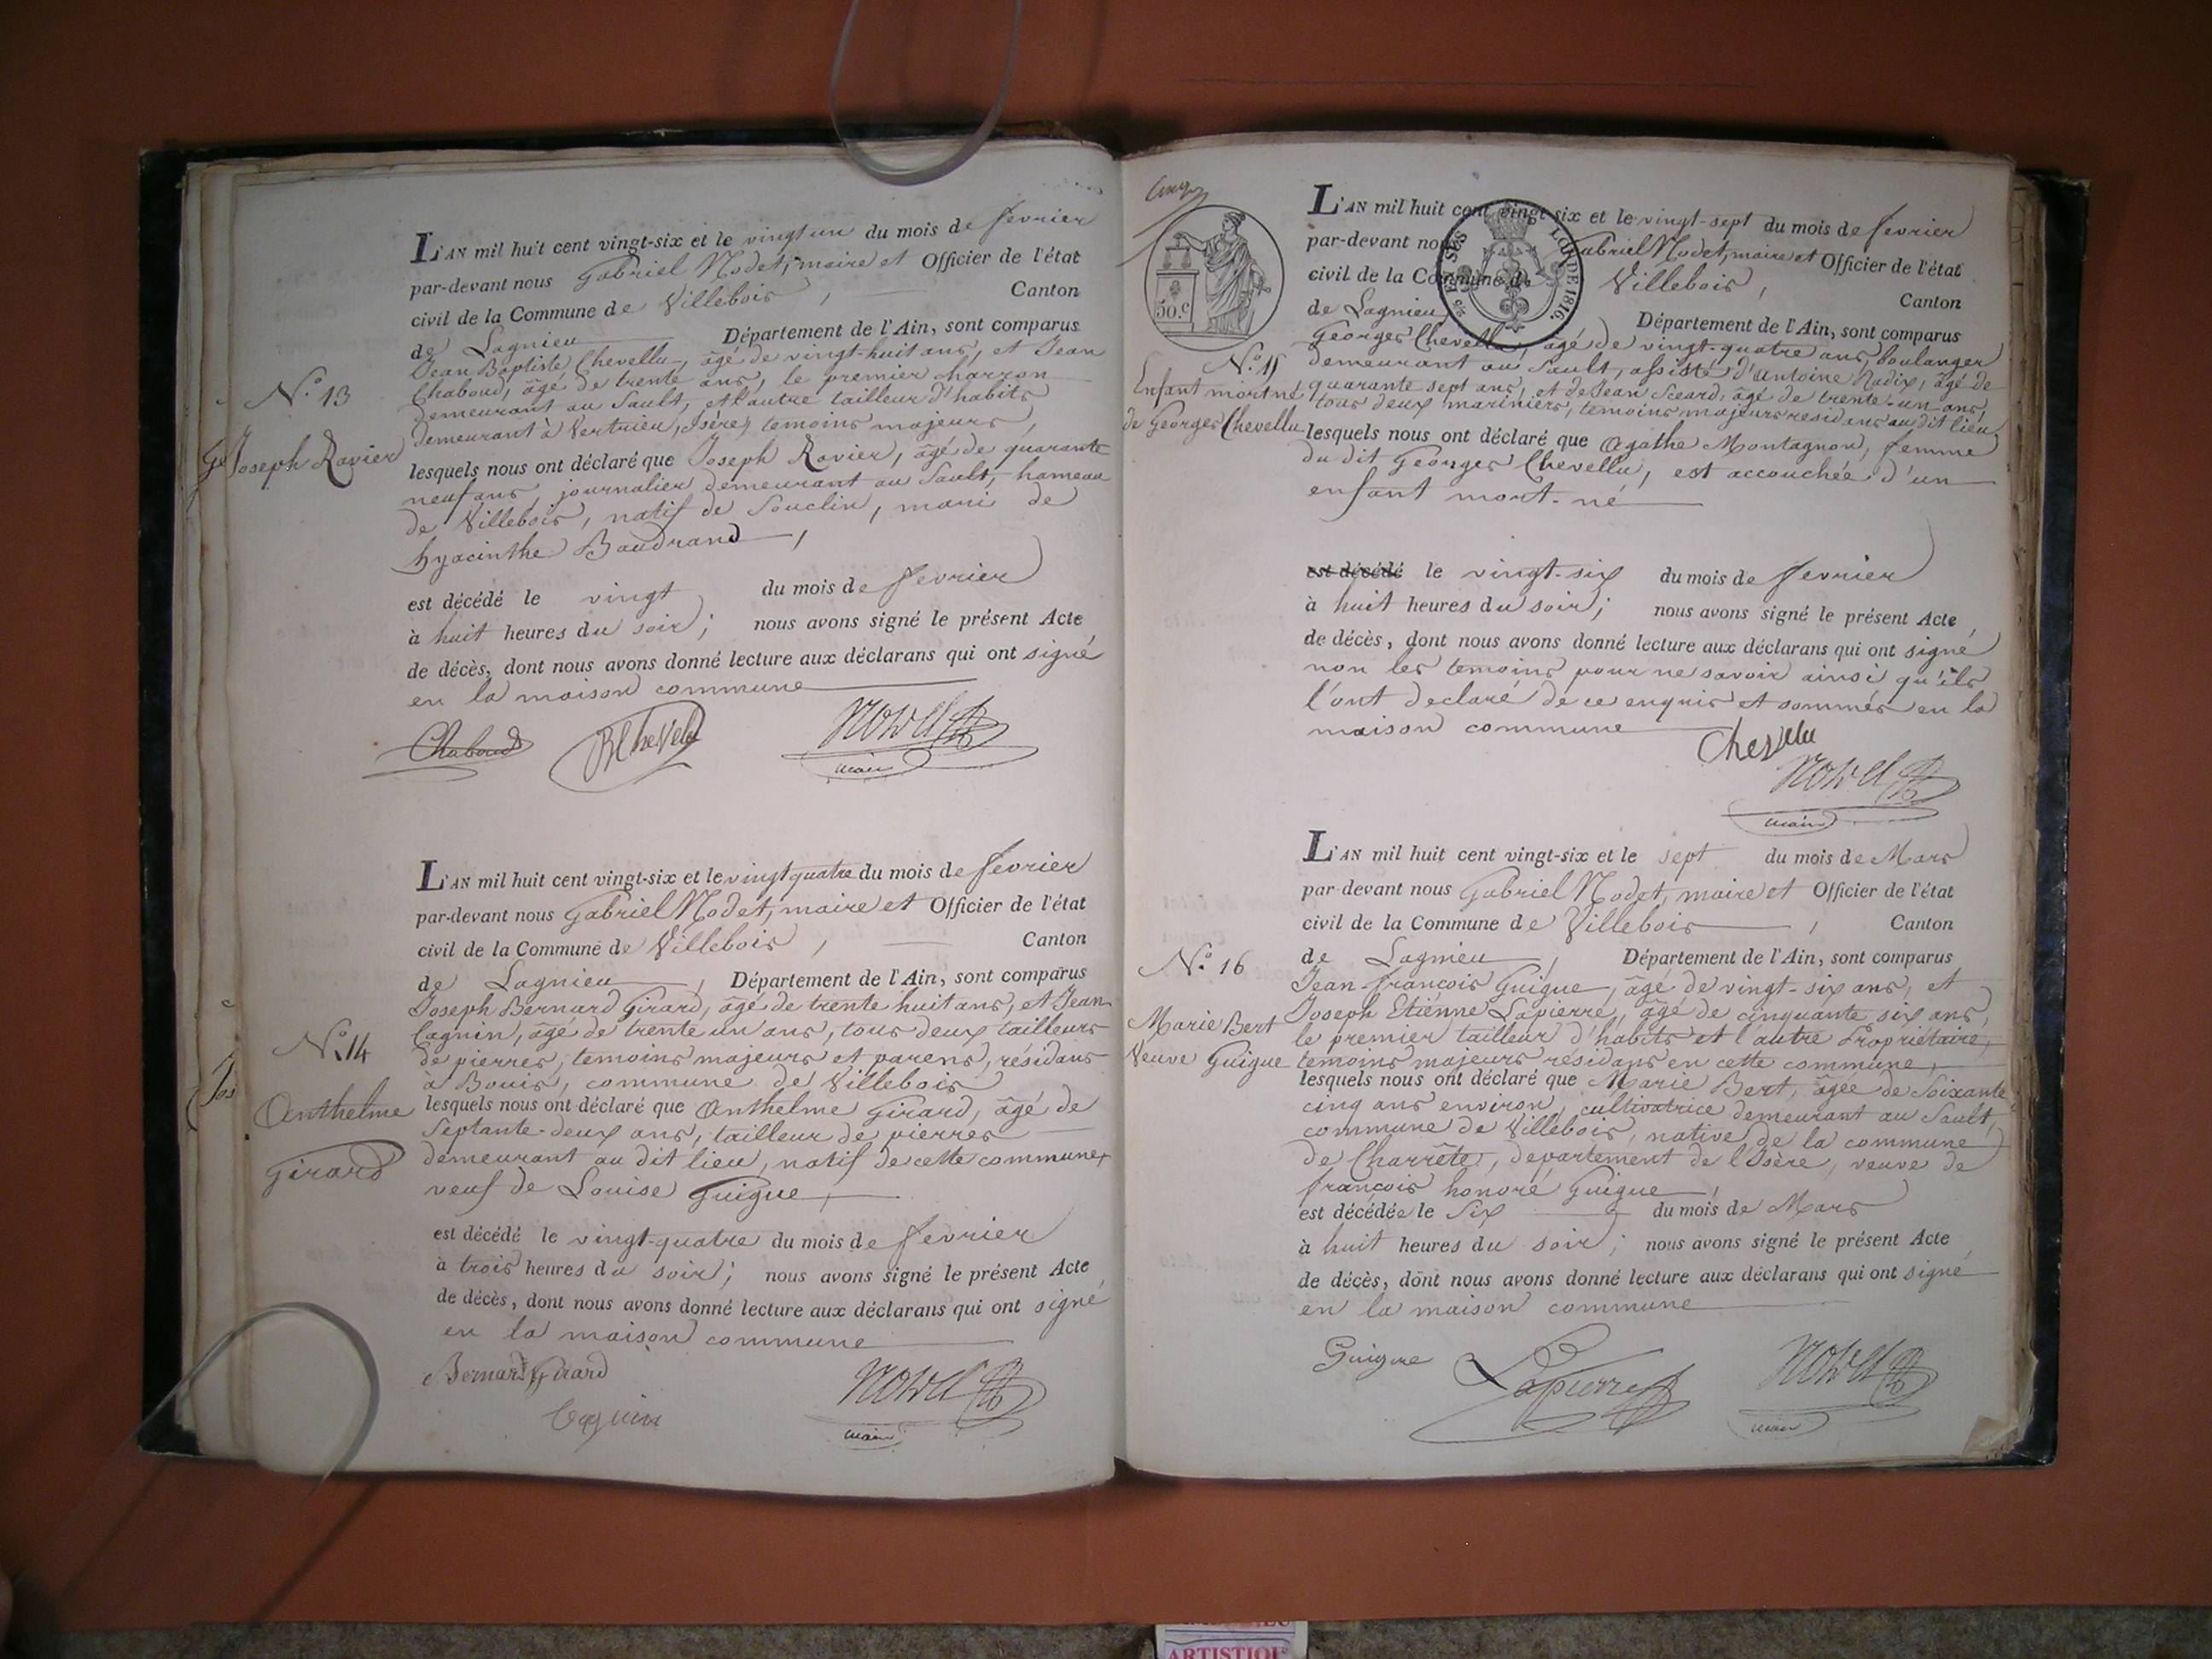 L'AN mil huit cent vingt-six et le vingt un du mois de fevrier
par-devant nous Gabriel Nodet, maire et Officier de l'état
civil de la Commune de Villebois, Canton
de Lagnieu Département de l'Ain, sont comparus
Jean Baptiste Chevellu, âgé de vingt-huit ans, et Jean
Chaboud, âgé de trente ans, le premier charron
demeurant au Sault, et l'autre tailleur d'habits
demeurant à Vertrieu, Isère, temoins majeurs,
N.º 13
Joseph Ravier
lesquels nous ont déclaré que Joseph Ravier, âgé de quarante
neuf ans, journalier demeurant au Sault, hameau
de Villebois, natif de Souclin, mari de
hyacinthe Baudrand,
est décédé le vingt du mois de fevrier
à huit heures du soir; nous avons signé le présent Acte
de décès, dont nous avons donné lecture aux déclarans qui ont signé
en la maison commune
Chaboud
Nodet
maire
L'AN mil huit cent vingt-six et le vingt quatre du mois de fevrier
par-devant nous Gabriel Nodet, maire et Officier de l'état
civil de la Commune de Villebois, Canton
de Lagnieu, Département de l'Ain, sont comparus
Joseph Bernard Girard, âgé de trente huit ans, et Jean
Cagnin, âgé de trente un ans, tous deux tailleurs
de pierres, temoins majeurs et parens, résidans
à Bouis, commune de Villebois
N.º 14
Anthelme
Girard
Jos
lesquels nous ont déclaré que Anthelme Girard, âgé de
Septante-deux ans, tailleur de pierres
demeurant au dit lieu, natif de cette commune,
veuf de Louise Guigue,
est décédé le vingt-quatre du mois de fevrier
à trois heures du soir; nous avons signé le présent Acte
de décès, dont nous avons donné lecture aux déclarans qui ont signé
en la maison commune
Bernard Girard
Cagnin
Nodet
maire
50.c
LOI DE 1816.
L'AN mil huit cent vingt-six et le vingt-sept du mois de fevrier
par-devant nous Gabriel Nodet, maire et Officier de l'état
civil de la Commune de Villebois, Canton
de Lagnieu Département de l'Ain, sont comparus
Georges Chevellu, âgé de vingt-quatre ans, boulanger
demeurant au Sault, assisté d'Antoine Radix, âgé de
quarante sept ans, et de Jean Sceard, âgé de trente-un ans,
tous deux mariniers, temoins majeurs residans au dit lieu
N.º 15
Enfant mort né
de Georges Chevellu
lesquels nous ont déclaré que Agathe Montagnon, femme
du dit Georges Chevellu, est accouchée d'un
enfant mort-né
est décédé le vingt-six du mois de fevrier
à huit heures du soir; nous avons signé le présent Acte
de décès, dont nous avons donné lecture aux déclarans qui ont signé
non les temoins pour ne savoir ainsi qu'ils
l'ont declaré de ce enquis et sommés en la
maison commune
Chevelu
Nodet
maire
L'AN mil huit cent vingt-six et le sept du mois de Mars
par-devant nous Gabriel Nodet, maire et Officier de l'état
civil de la Commune de Villebois, Canton
de Lagnieu, Département de l'Ain, sont comparus
Jean-françois Guigue, âgé de vingt-six ans, et
Joseph Etienne Lapierre, âgé de cinquante six ans,
le premier tailleur d'habits et l'autre Propriétaire,
temoins majeurs residans en cette commune,
N.º 16
Marie Bert
Veuve Guigue
lesquels nous ont déclaré que Marie Bert, âgée de Soixante
cinq ans environ, cultivatrice demeurant au Sault,
commune de Villebois, native de la commune
de Charrête, département de l'Isère, veuve de
françois honoré Guigue,
est décédée le Six du mois de Mars
à huit heures du soir; nous avons signé le présent Acte
de décès, dont nous avons donné lecture aux déclarans qui ont signé
en la maison commune
Guigue
Lapierre
Nodet
maire
ARTISTIQUE